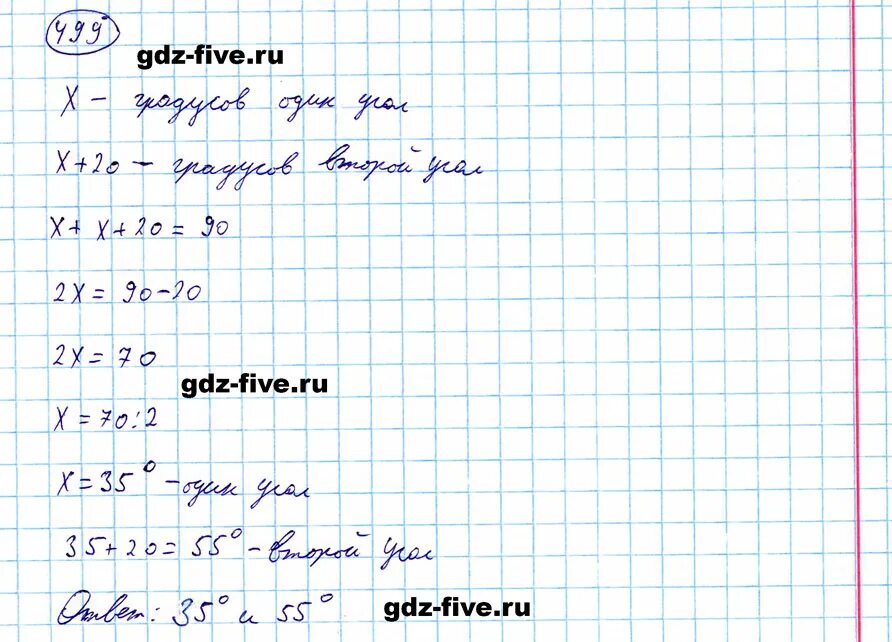 499
gdz-five.ru
x - градусов один угол
x+20 - градусов второй угол
x+x+20=90
2x=90-20
2x=70
gdz-five.ru
x=70:2
x=35° - один угол
35+20=55° - второй угол
Ответ: 35° и 55°
gdz-five.ru